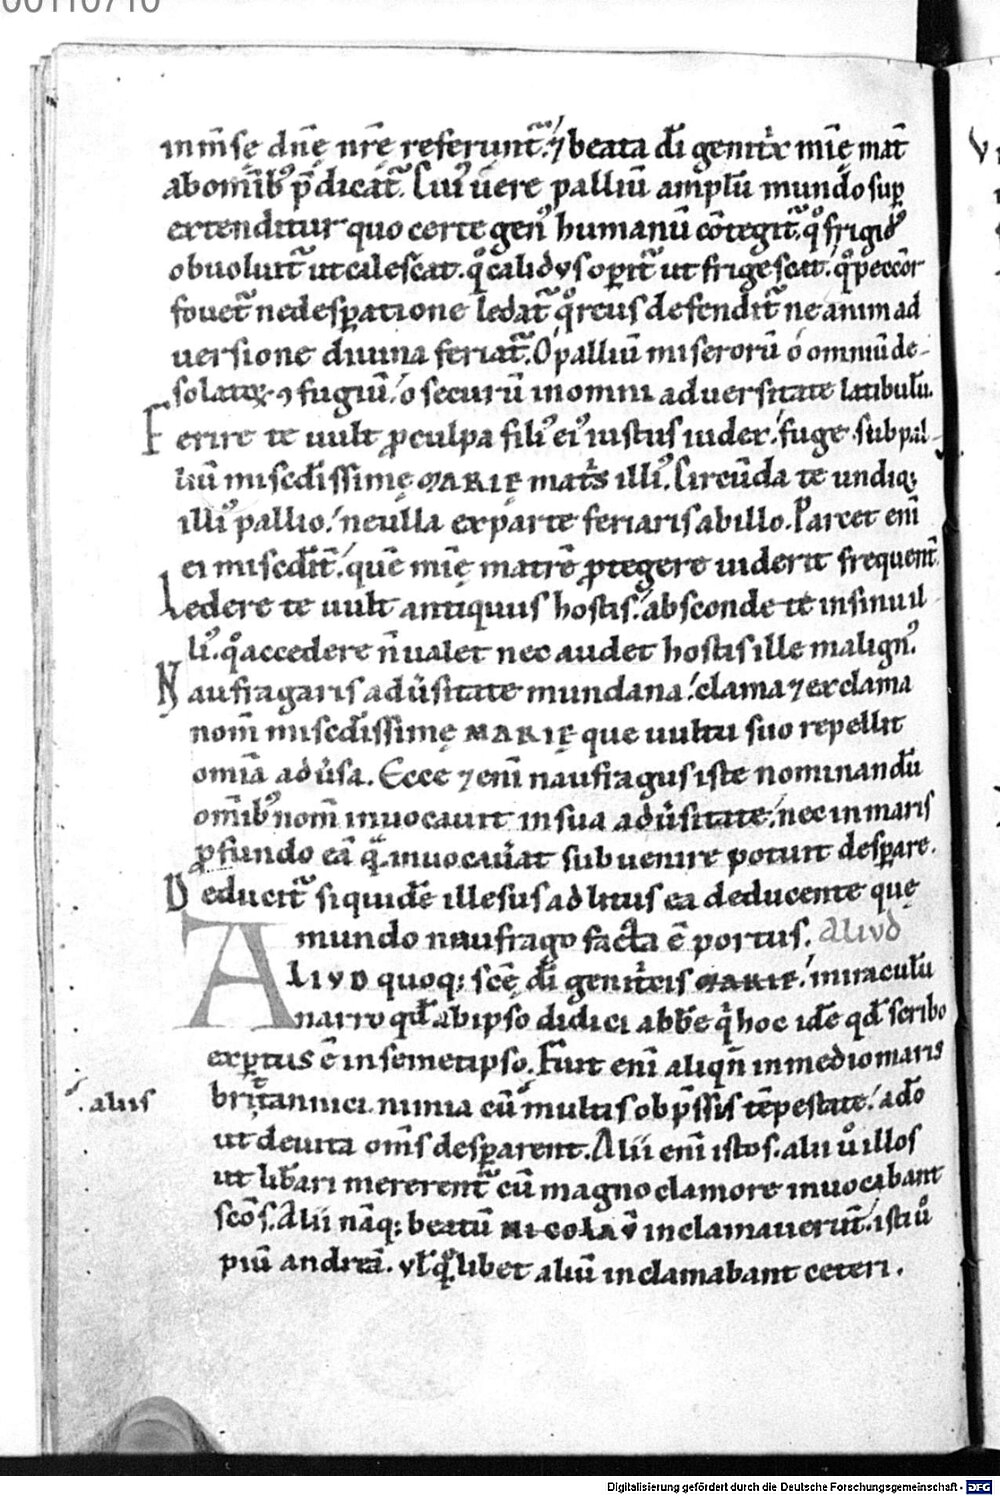 00110710
inm̄se dnē nrē referunt᷑. ⁊ beata dī genitⁱx mīe mat̄
abomīb᷒ p̄dicat᷑. Cui᷒ uere palliū amplū mundo suꝑ
extenditur quo certe gen᷒ humanū cōtegit᷑. qͦ frigid᷒
obuoluit᷑ ut calescat. qͦ calidus oꝑit᷑ ut frigescat. qͦ peccōr
fouet᷑ ne desꝑatione ledat᷑. qͦ reus defendit᷑ ne animad
uersione diuina feriat᷑. O palliū miserorū o omniū de-
solatoꝝ ꝯfugiū. o securū in omni aduersitate latibulū.
Ferire te uult ꝓ culpa fili᷒ ei᷒ iustus iudex. fuge sub pal-
liū miscdissimę MARIE matⁱs illi᷒. Circūda te undiqꝫ
illi᷒ pallio. ne ulla ex parte feriaris ab illo. Parcet enī
ei miscdīt. quē mīe matrē ꝓtegere uiderit frequent̄.
Ledere te uult antiquus hostis. absconde te in sinu il
li᷒. qͦ accedere n̄ ualet nec audet hostis ille malign᷒.
Naufragaris adūsitate mundana. clama ⁊ exclama
nom̄ miscdissimę MARIE que uultu suo repellit
omīa adūsa. Ecce ⁊ enī naufragus iste nominandū
omīb᷒ nom̄ inuocauit in sua adūsitate. nec in maris
ꝓfundo eā qͣ inuocauāt subuenire potuit desꝑare.
Deducit᷑ siquidē illesus ad litus ea deducente quę
mundo naufrago facta ē portus. Aliud
ALIVD quoqꝫ scē dī genitⁱcis MARIE. miraculū
narro qđ ab ipso didici abbe qⁱ hoc idē qđ scribo
exꝑtus ē in semetipso. Fuit enī aliqn̄ in medio maris
britannici. nimia cū multis obp̄ssus tēpestate. adō
.alius
ut de uita om̄s desꝑarent. Alii enī istos. alii ūo illos
ut libari mererent᷑ cū magno clamore inuocabant
scōs. Alii nāqꝫ beatū NICOLAV̄ inclamauerūt. isti ūo
piū andreā. ul qͦlibet aliū inclamabant ceteri.
Digitalisierung gefördert durch die Deutsche Forschungsgemeinschaft - DFG